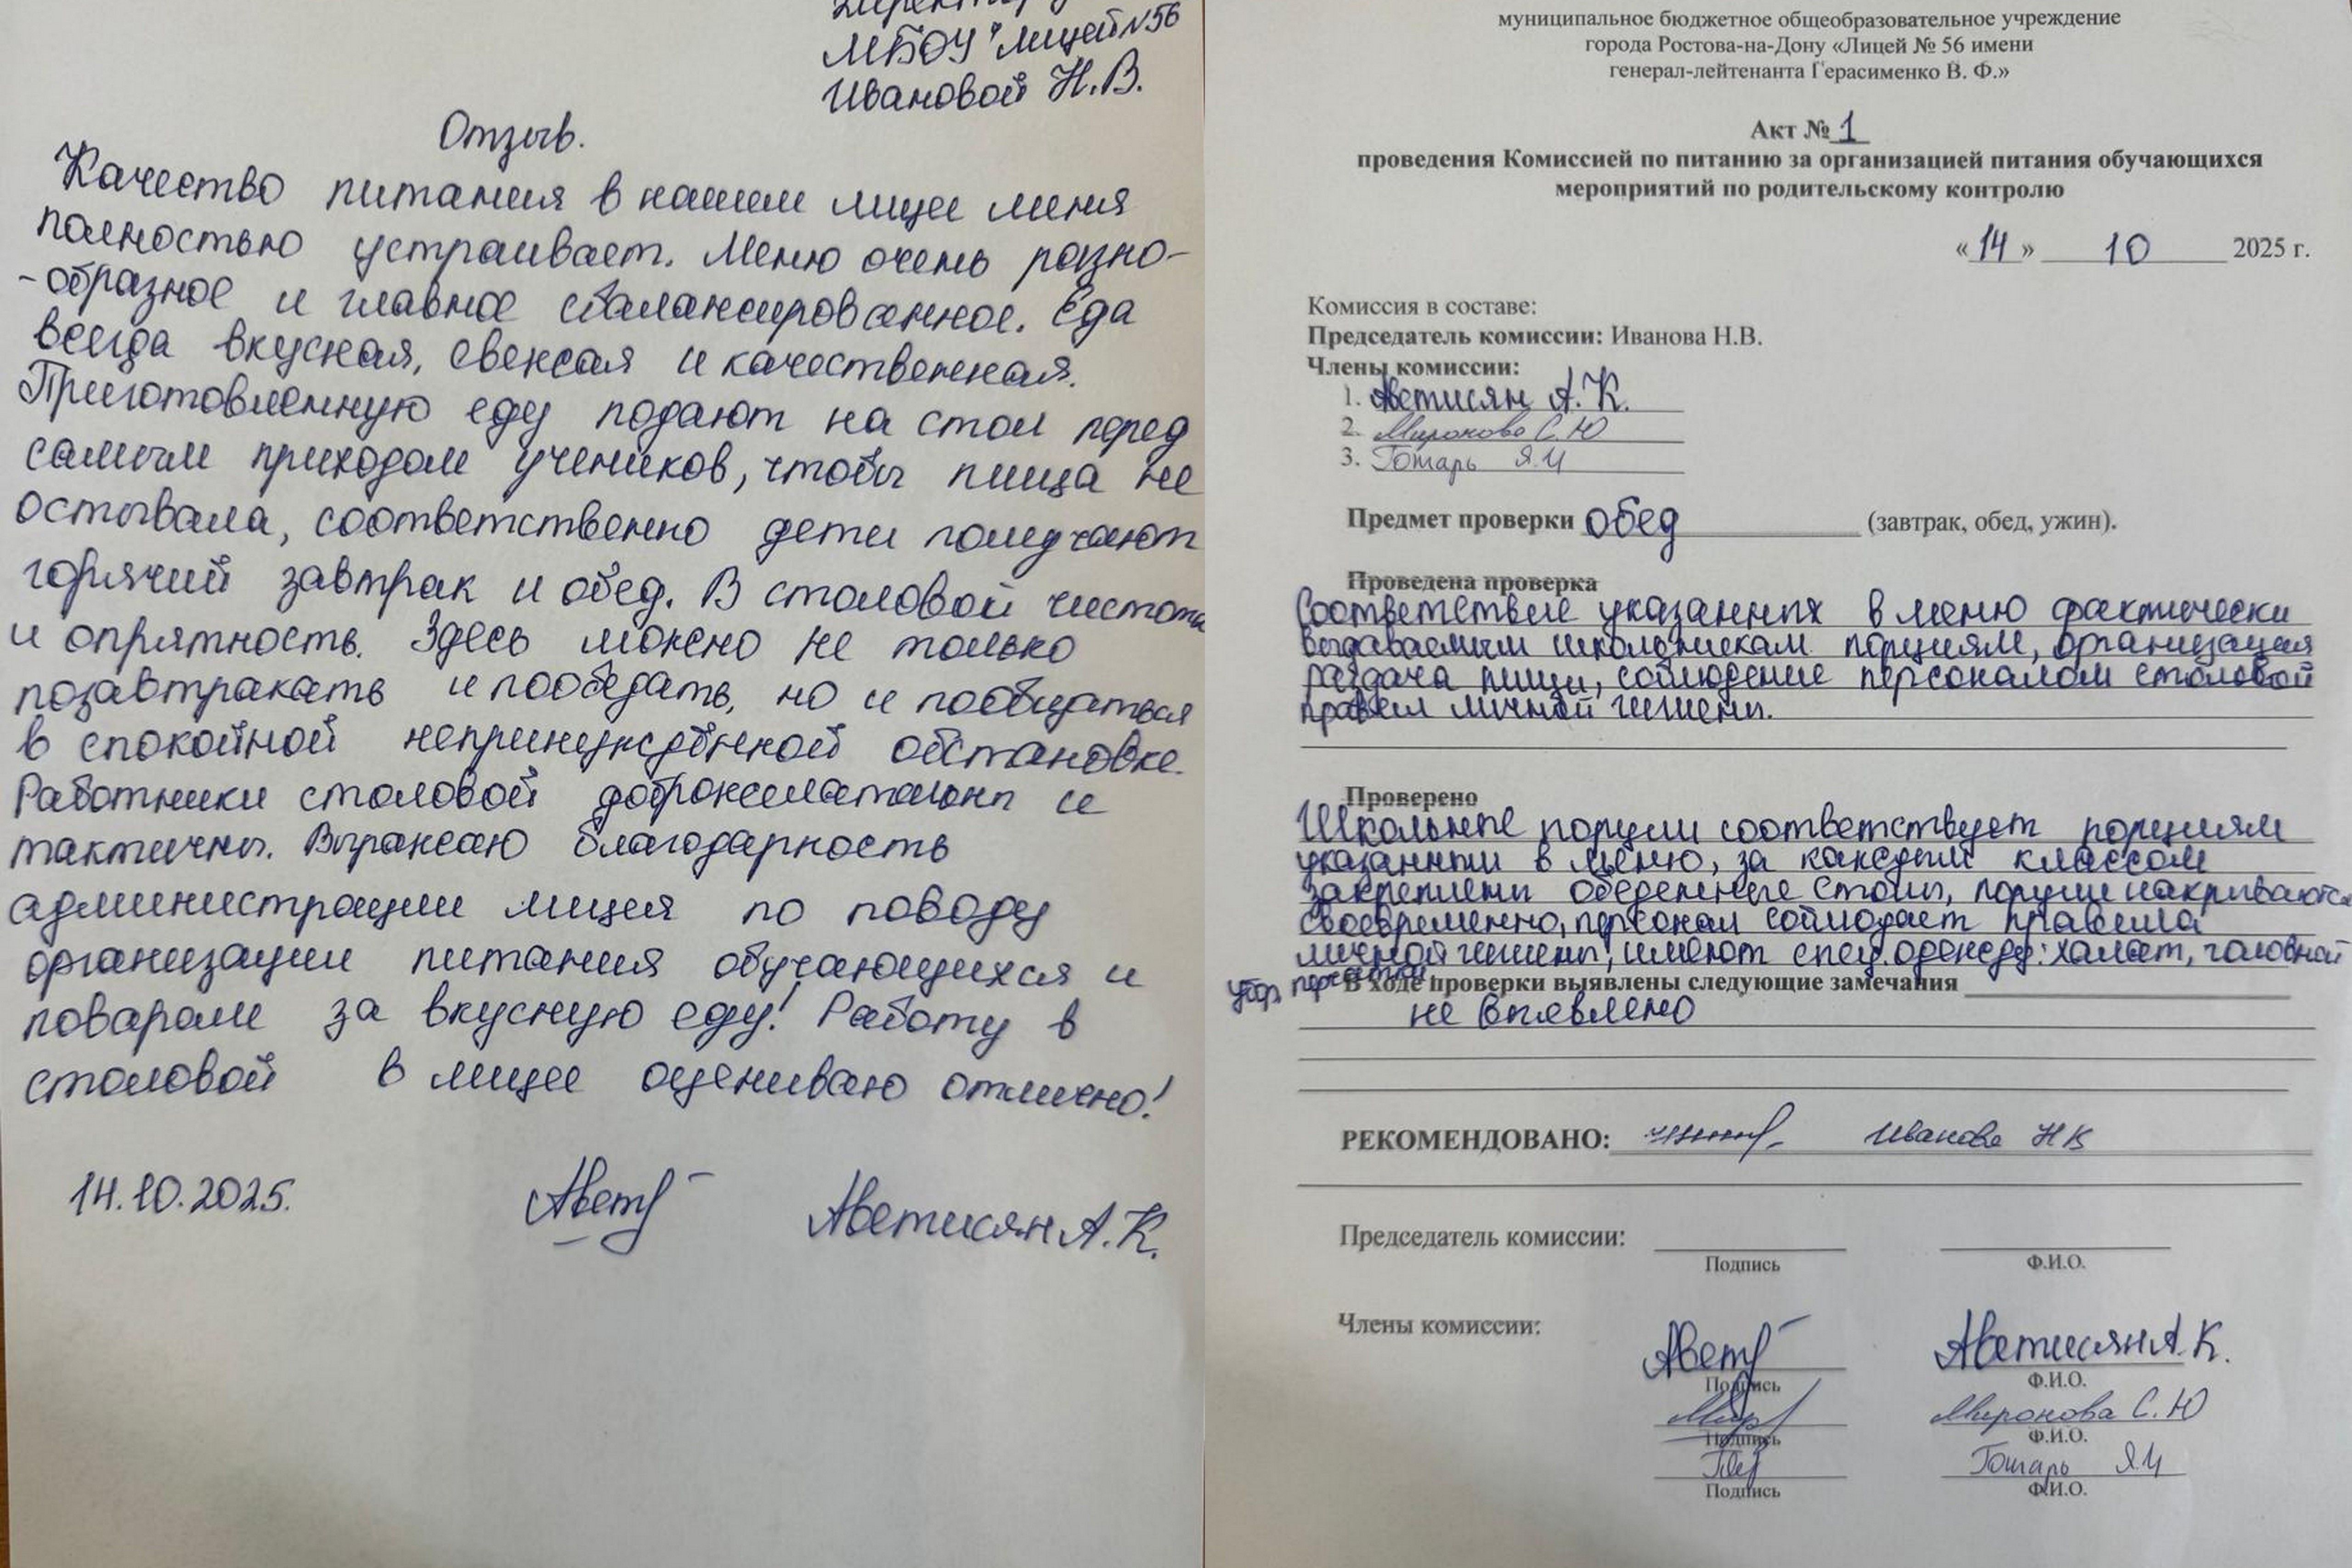 МБОУ "Лицей №56
Ивановой Н.В.
Отзыв.
Качество питания в нашем лицее меня
полностью устраивает. Меню очень разно-
-образное и главное сбалансированное. Еда
всегда вкусная, свежая и качественная.
Приготовленную еду подают на стол перед
самым приходом учеников, чтобы пища не
остывала, соответственно дети получают
горячий завтрак и обед. В столовой чистота
и опрятность. Здесь можно не только
позавтракать и пообедать, но и пообщаться
в спокойной непринуждённой обстановке.
Работники столовой доброжелательны и
тактичны. Выражаю благодарность
администрации лицея по поводу
организации питания обучающихся и
поварам за вкусную еду! Работу в
столовой в лицее оцениваю отлично!
14.10.2025. Аветисян А.К.
муниципальное бюджетное общеобразовательное учреждение
города Ростова-на-Дону «Лицей № 56 имени
генерал-лейтенанта Герасименко В. Ф.»
Акт № 1
проведения Комиссией по питанию за организацией питания обучающихся
мероприятий по родительскому контролю
«14» 10 2025 г.
Комиссия в составе:
Председатель комиссии: Иванова Н.В.
Члены комиссии:
1. Аветисян А.К.
2. Миронова С.Ю
3. Гошарь Я.И
Предмет проверки обед (завтрак, обед, ужин).
Проведена проверка
Соответствие указанных в меню фактически
выдаваемым школьникам порциям, организация
раздача пищи, соблюдение персоналом столовой
правил личной гигиены.
Проверено
Школьные порции соответствует порциям
указанным в меню, за каждым классом
закреплены обеденные столы, порции накрываются
своевременно, персонал соблюдает правила
личной гигиены, имеют спец. одежду: халат, головной
убор, перчатки.
В ходе проверки выявлены следующие замечания
не выявлено
РЕКОМЕНДОВАНО: Иванова Н В
Председатель комиссии:
Подпись Ф.И.О.
Члены комиссии:
Аветисян А.К.
Подпись Ф.И.О.
Миронова С.Ю
Подпись Ф.И.О.
Гошарь Я.И
Подпись Ф.И.О.